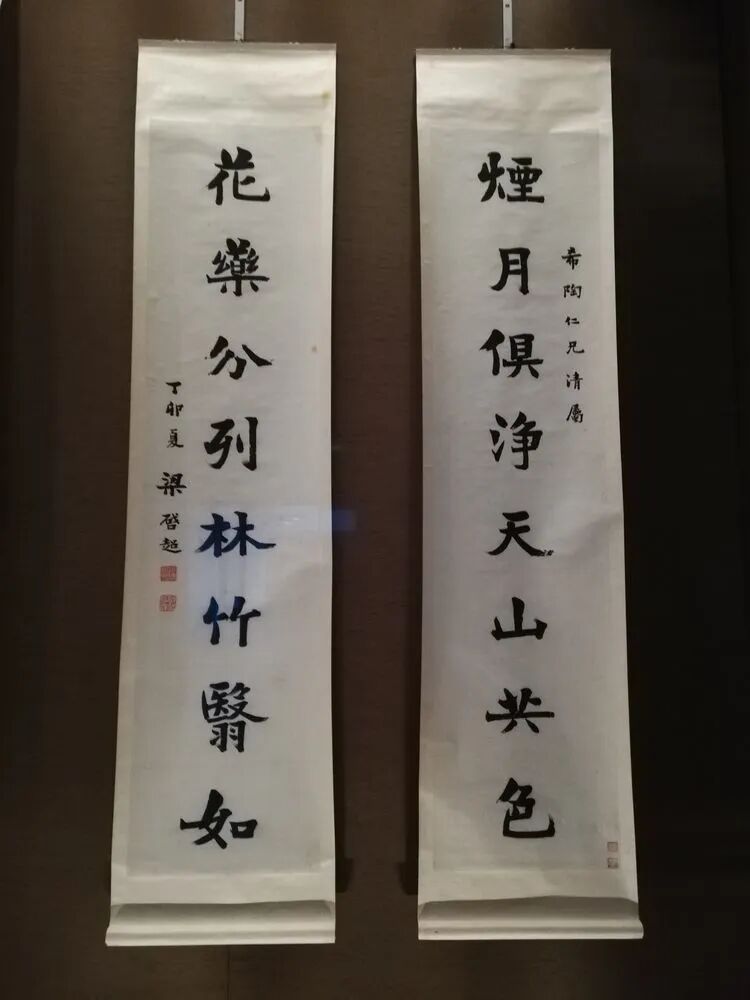 煙月俱淨天山共色
希陶仁兄清屬
花藥分列林竹翳如
丁卯夏 梁啓超